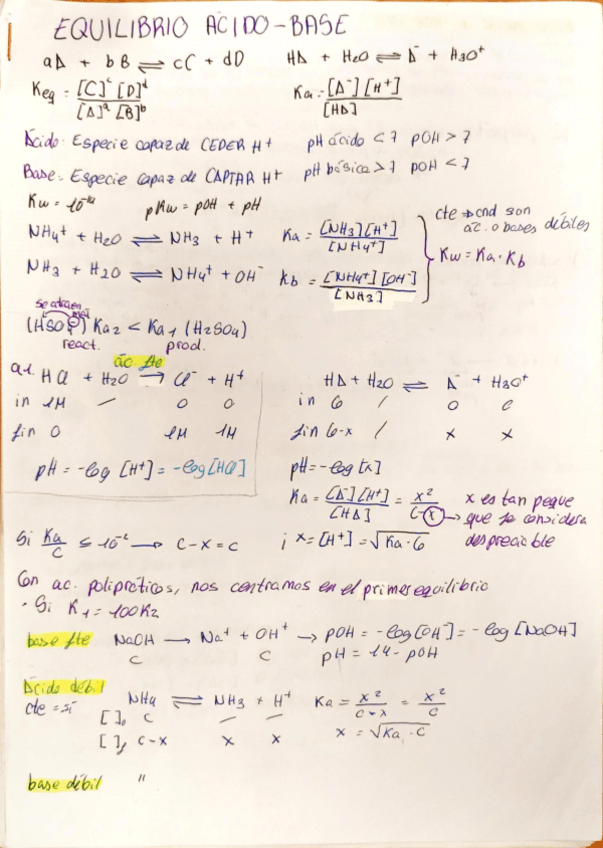 EQUILIBRIO ÁCIDO-BASE
aA + bB ⇌ cC + dD    HA + H2O ⇌ A⁻ + H3O⁺
Keq = [C]ᶜ [D]ᵈ / [A]ᵃ [B]ᵇ    Ka = [A⁻] [H⁺] / [HA]
Ácido: Especie capaz de CEDER H+    pH ácido < 7  pOH > 7
Base: Especie capaz de CAPTAR H+    pH básica > 7  pOH < 7
Kw = 10⁻¹⁴    pKw = pOH + pH
NH4⁺ + H2O ⇌ NH3 + H⁺    Ka = [NH3][H⁺] / [NH4⁺]
NH3 + H2O ⇌ NH4⁺ + OH⁻    Kb = [NH4⁺][OH⁻] / [NH3]
son
ác. o bases débiles
Kw = Ka · Kb
se atraen
(HSO4⁻) Ka2 < Ka1 (H2SO4)
react.    prod.
ác. fte
a1. HCl + H2O → Cl⁻ + H⁺
in 1M  /  0  0
fin 0  1M  1M
pH = -log [H⁺] = -log [HCl]
HA + H2O ⇌ A⁻ + H3O⁺
in C  /  0  0
fin C-x  /  x  x
pH = -log [x]
Ka = [A⁻][H⁺] / [HA] = x² / C-x → x es tan peque
que se considera
despreciable
Si Ka/C ≤ 10⁻² → C-x = C    ; x = [H⁺] = √Ka · C
Con ac. polipróticos, nos centramos en el primer equilibrio
· Si K1 = 100K2
base fte  NaOH → Na⁺ + OH⁺ → pOH = -log[OH⁻] = -log [NaOH]
C    C    pH = 14 - pOH
Ácido débil
cte = sí  NH4 ⇌ NH3 + H⁺    Ka = x² / C-x = x² / C
[ ]o  C  —  —
[ ]f  C-x  x  x    x = √Ka · C
base débil  "